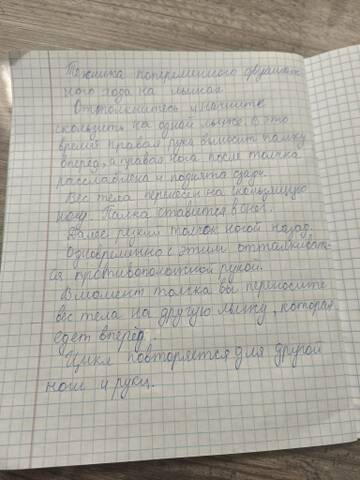 Техника попеременного двушаж
ного хода на лыжах
Оттолкнитесь и начните
скользить на одной лыже. В это
время правая рука выносит палку
вперёд, а правая нога после толчка
расслаблена и поднята сзади.
Вес тела перенесён на скользящую
ногу. Палка ставится в снег.
Далее резкий толчок ногой назад.
Одновременно с этим отталкивает-
ся противоположной рукой.
В момент толчка вы переносите
вес тела на другую лыжу, которая
едет вперёд.
Цикл повторяется для другой
ноги и руки.